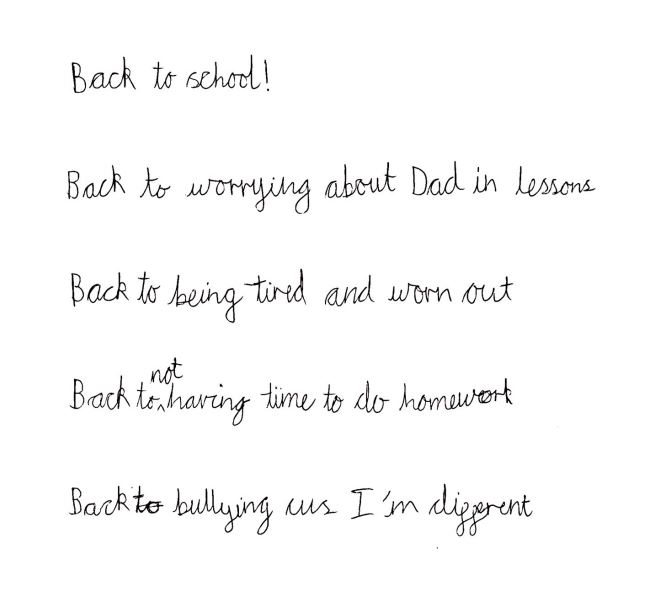 Back to school!
Back to worrying about Dad in lessons
Back to being tired and worn out
Back to not having time to do homework
Back to bullying cus I'm different